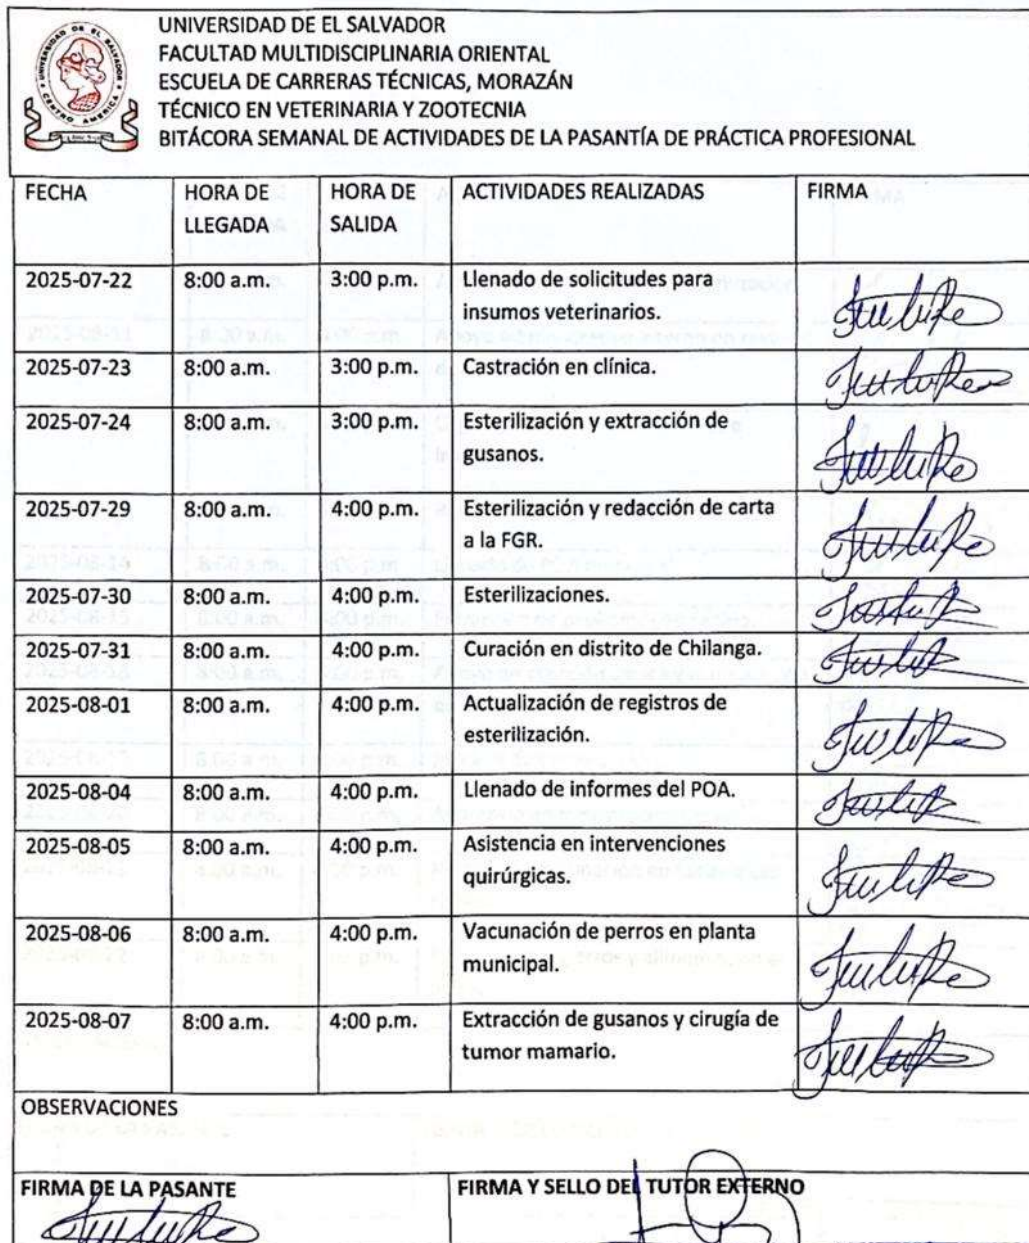 UNIVERSIDAD DE EL SALVADOR
FACULTAD MULTIDISCIPLINARIA ORIENTAL
ESCUELA DE CARRERAS TÉCNICAS, MORAZÁN
TÉCNICO EN VETERINARIA Y ZOOTECNIA
BITÁCORA SEMANAL DE ACTIVIDADES DE LA PASANTÍA DE PRÁCTICA PROFESIONAL
FECHA HORA DE LLEGADA HORA DE SALIDA ACTIVIDADES REALIZADAS FIRMA
2025-07-22 8:00 a.m. 3:00 p.m. Llenado de solicitudes para
insumos veterinarios.
2025-07-23 8:00 a.m. 3:00 p.m. Castración en clínica.
2025-07-24 8:00 a.m. 3:00 p.m. Esterilización y extracción de
gusanos.
2025-07-29 8:00 a.m. 4:00 p.m. Esterilización y redacción de carta
a la FGR.
2025-07-30 8:00 a.m. 4:00 p.m. Esterilizaciones.
2025-07-31 8:00 a.m. 4:00 p.m. Curación en distrito de Chilanga.
2025-08-01 8:00 a.m. 4:00 p.m. Actualización de registros de
esterilización.
2025-08-04 8:00 a.m. 4:00 p.m. Llenado de informes del POA.
2025-08-05 8:00 a.m. 4:00 p.m. Asistencia en intervenciones
quirúrgicas.
2025-08-06 8:00 a.m. 4:00 p.m. Vacunación de perros en planta
municipal.
2025-08-07 8:00 a.m. 4:00 p.m. Extracción de gusanos y cirugía de
tumor mamario.
OBSERVACIONES
FIRMA DE LA PASANTE FIRMA Y SELLO DEL TUTOR EXTERNO